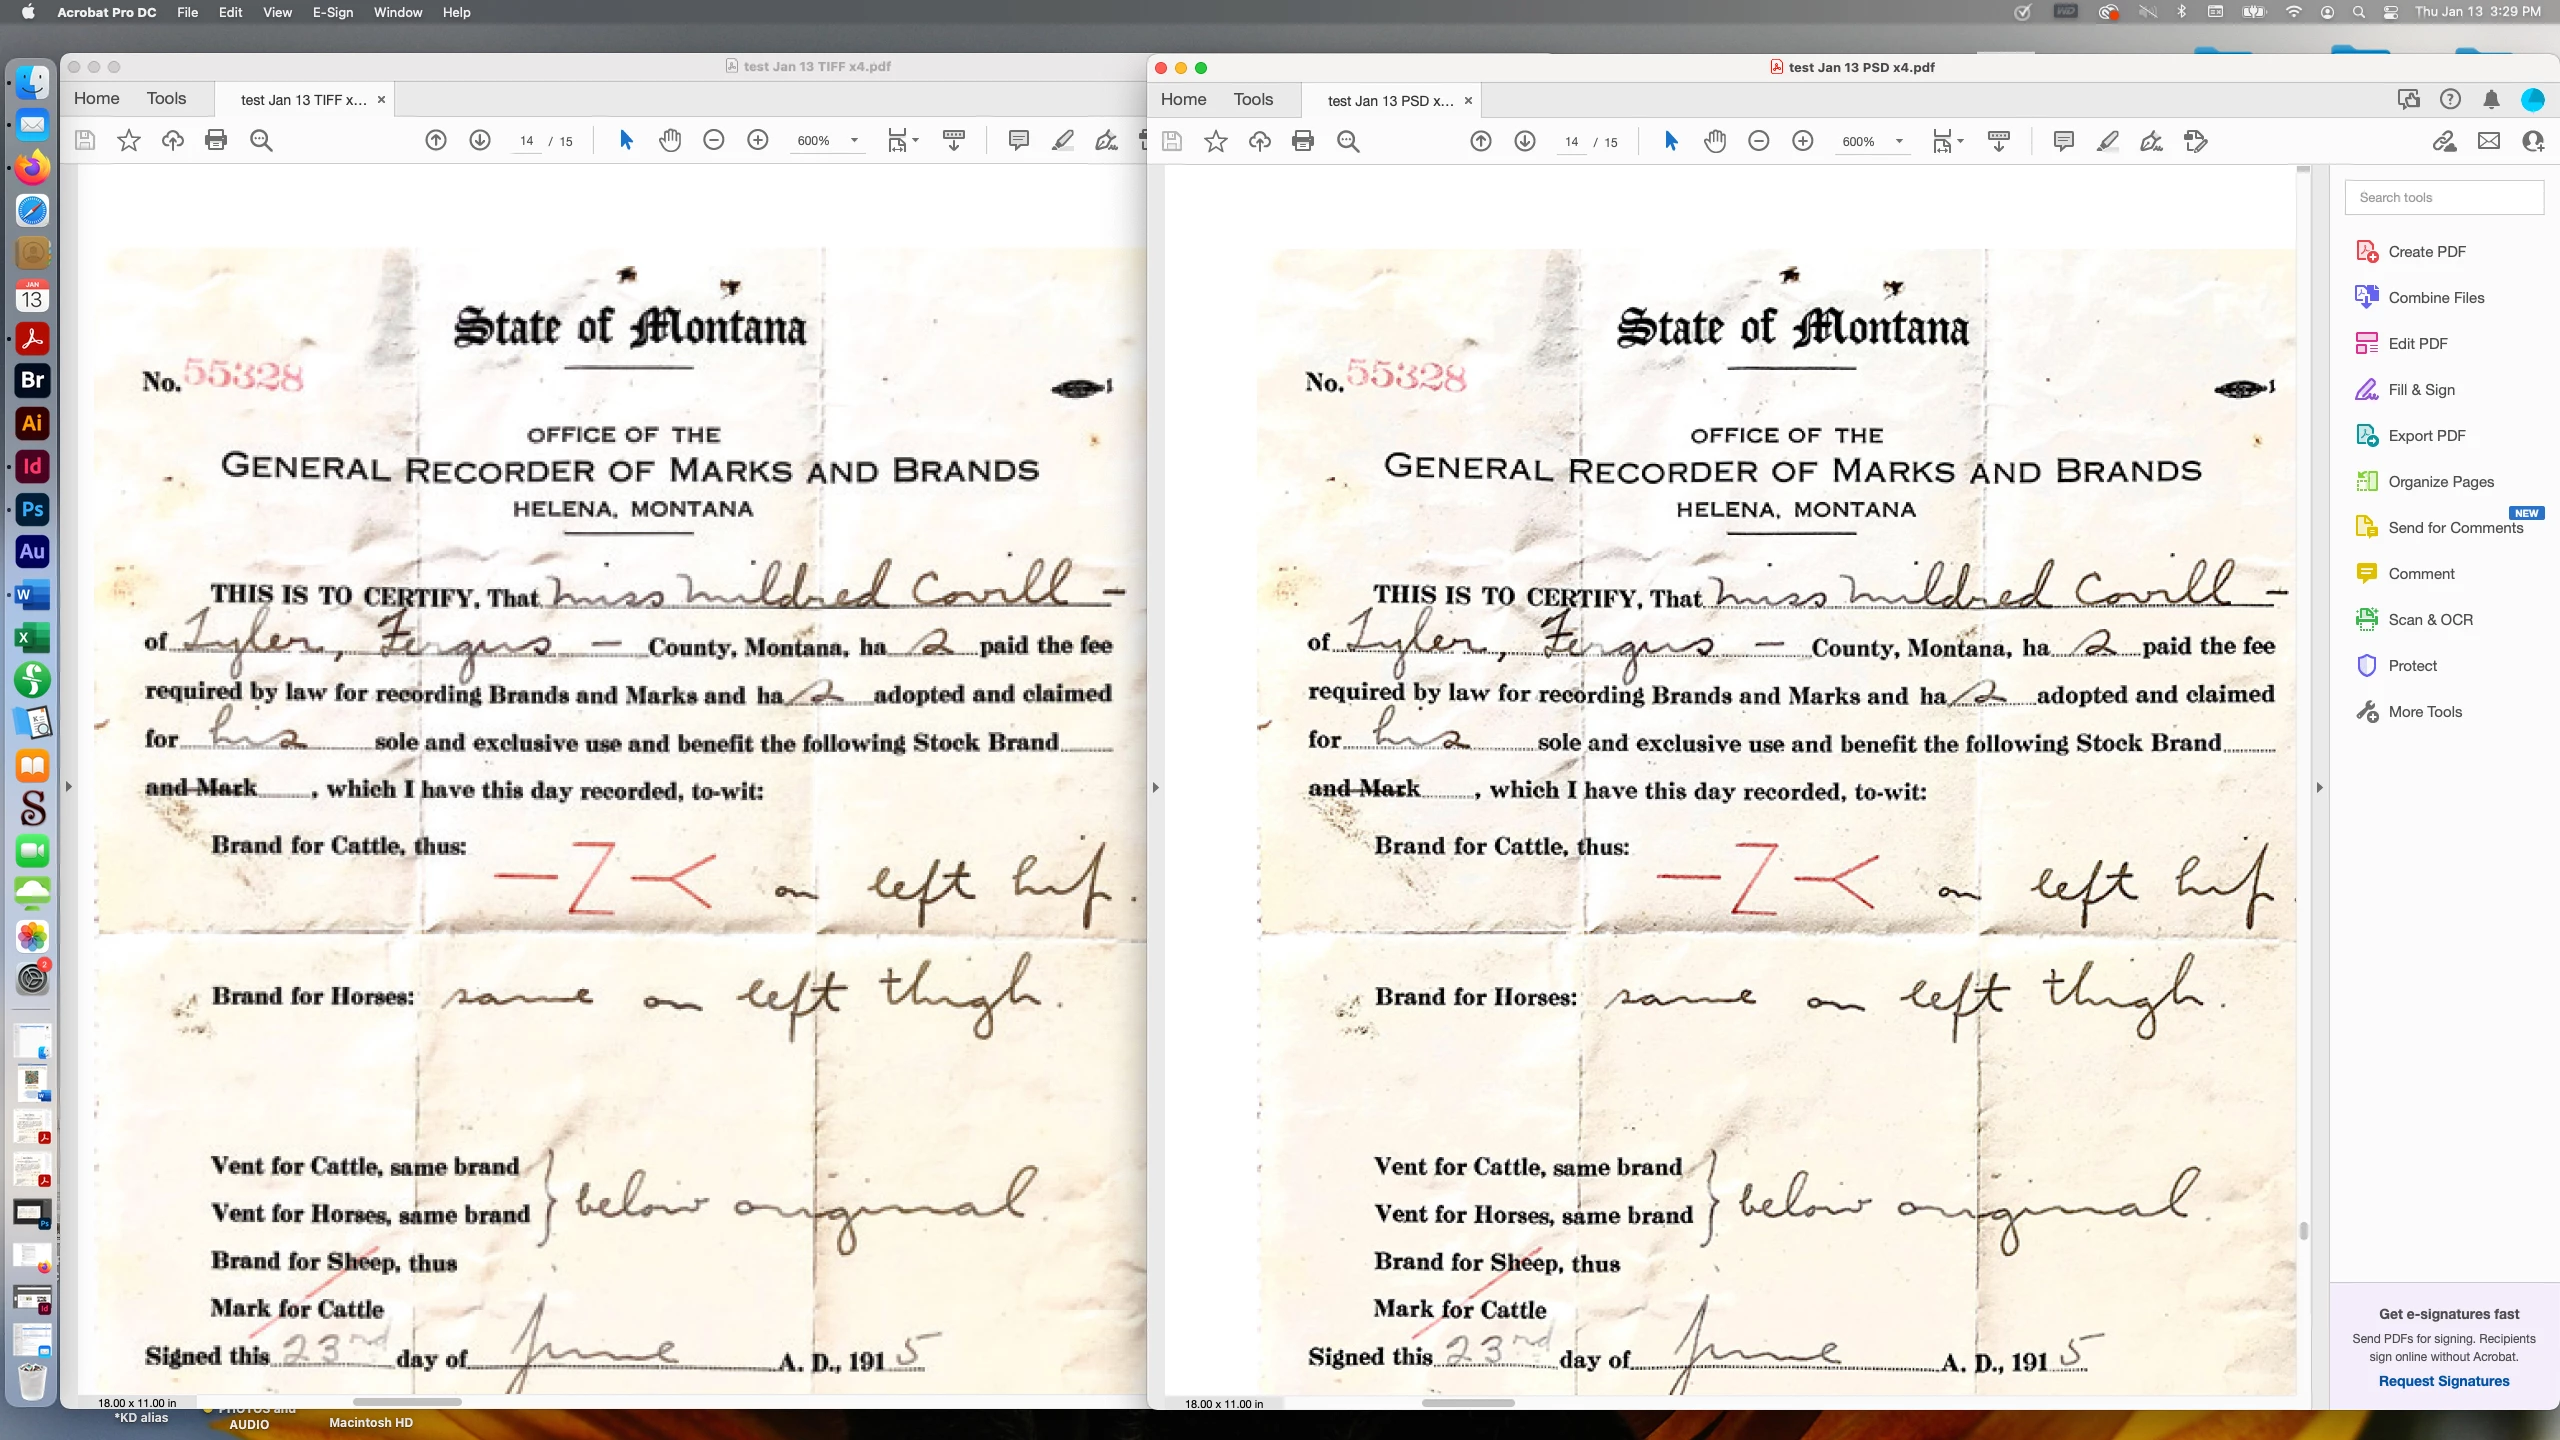 Acrobat Pro DC File Edit View E-Sign Window Help
Thu Jan 13 3:29 PM
test Jan 13 TIFF x4.pdf
Home Tools test Jan 13 TIFF x... ×
14 / 15 600%
State of Montana
No. 55328
OFFICE OF THE
GENERAL RECORDER OF MARKS AND BRANDS
HELENA, MONTANA
THIS IS TO CERTIFY, That Miss Mildred Covill –
of Tyler, Fergus – County, Montana, ha s paid the fee
required by law for recording Brands and Marks and ha s adopted and claimed
for his sole and exclusive use and benefit the following Stock Brand
and Mark , which I have this day recorded, to-wit:
Brand for Cattle, thus: –Z-< on left hip.
Brand for Horses: same on left thigh.
Vent for Cattle, same brand
Vent for Horses, same brand } below original.
Brand for Sheep, thus
Mark for Cattle
Signed this 23rd day of June A. D., 191 5
18.00 x 11.00 in
test Jan 13 PSD x4.pdf
Home Tools test Jan 13 PSD x... ×
14 / 15 600%
State of Montana
No. 55328
OFFICE OF THE
GENERAL RECORDER OF MARKS AND BRANDS
HELENA, MONTANA
THIS IS TO CERTIFY, That Miss Mildred Covill –
of Tyler, Fergus – County, Montana, ha s paid the fee
required by law for recording Brands and Marks and ha s adopted and claimed
for his sole and exclusive use and benefit the following Stock Brand
and Mark , which I have this day recorded, to-wit:
Brand for Cattle, thus: –Z-< on left hip
Brand for Horses: same on left thigh.
Vent for Cattle, same brand
Vent for Horses, same brand } below original.
Brand for Sheep, thus
Mark for Cattle
Signed this 23rd day of June A. D., 191 5
18.00 x 11.00 in
Search tools
Create PDF
Combine Files
Edit PDF
Fill & Sign
Export PDF
Organize Pages
NEW
Send for Comments
Comment
Scan & OCR
Protect
More Tools
Get e-signatures fast
Send PDFs for signing. Recipients
sign online without Acrobat.
Request Signatures
JAN
13
Br
Ai
Id
Ps
Au
W
X
S
2
*KD alias
PHOTOS and
AUDIO
Macintosh HD